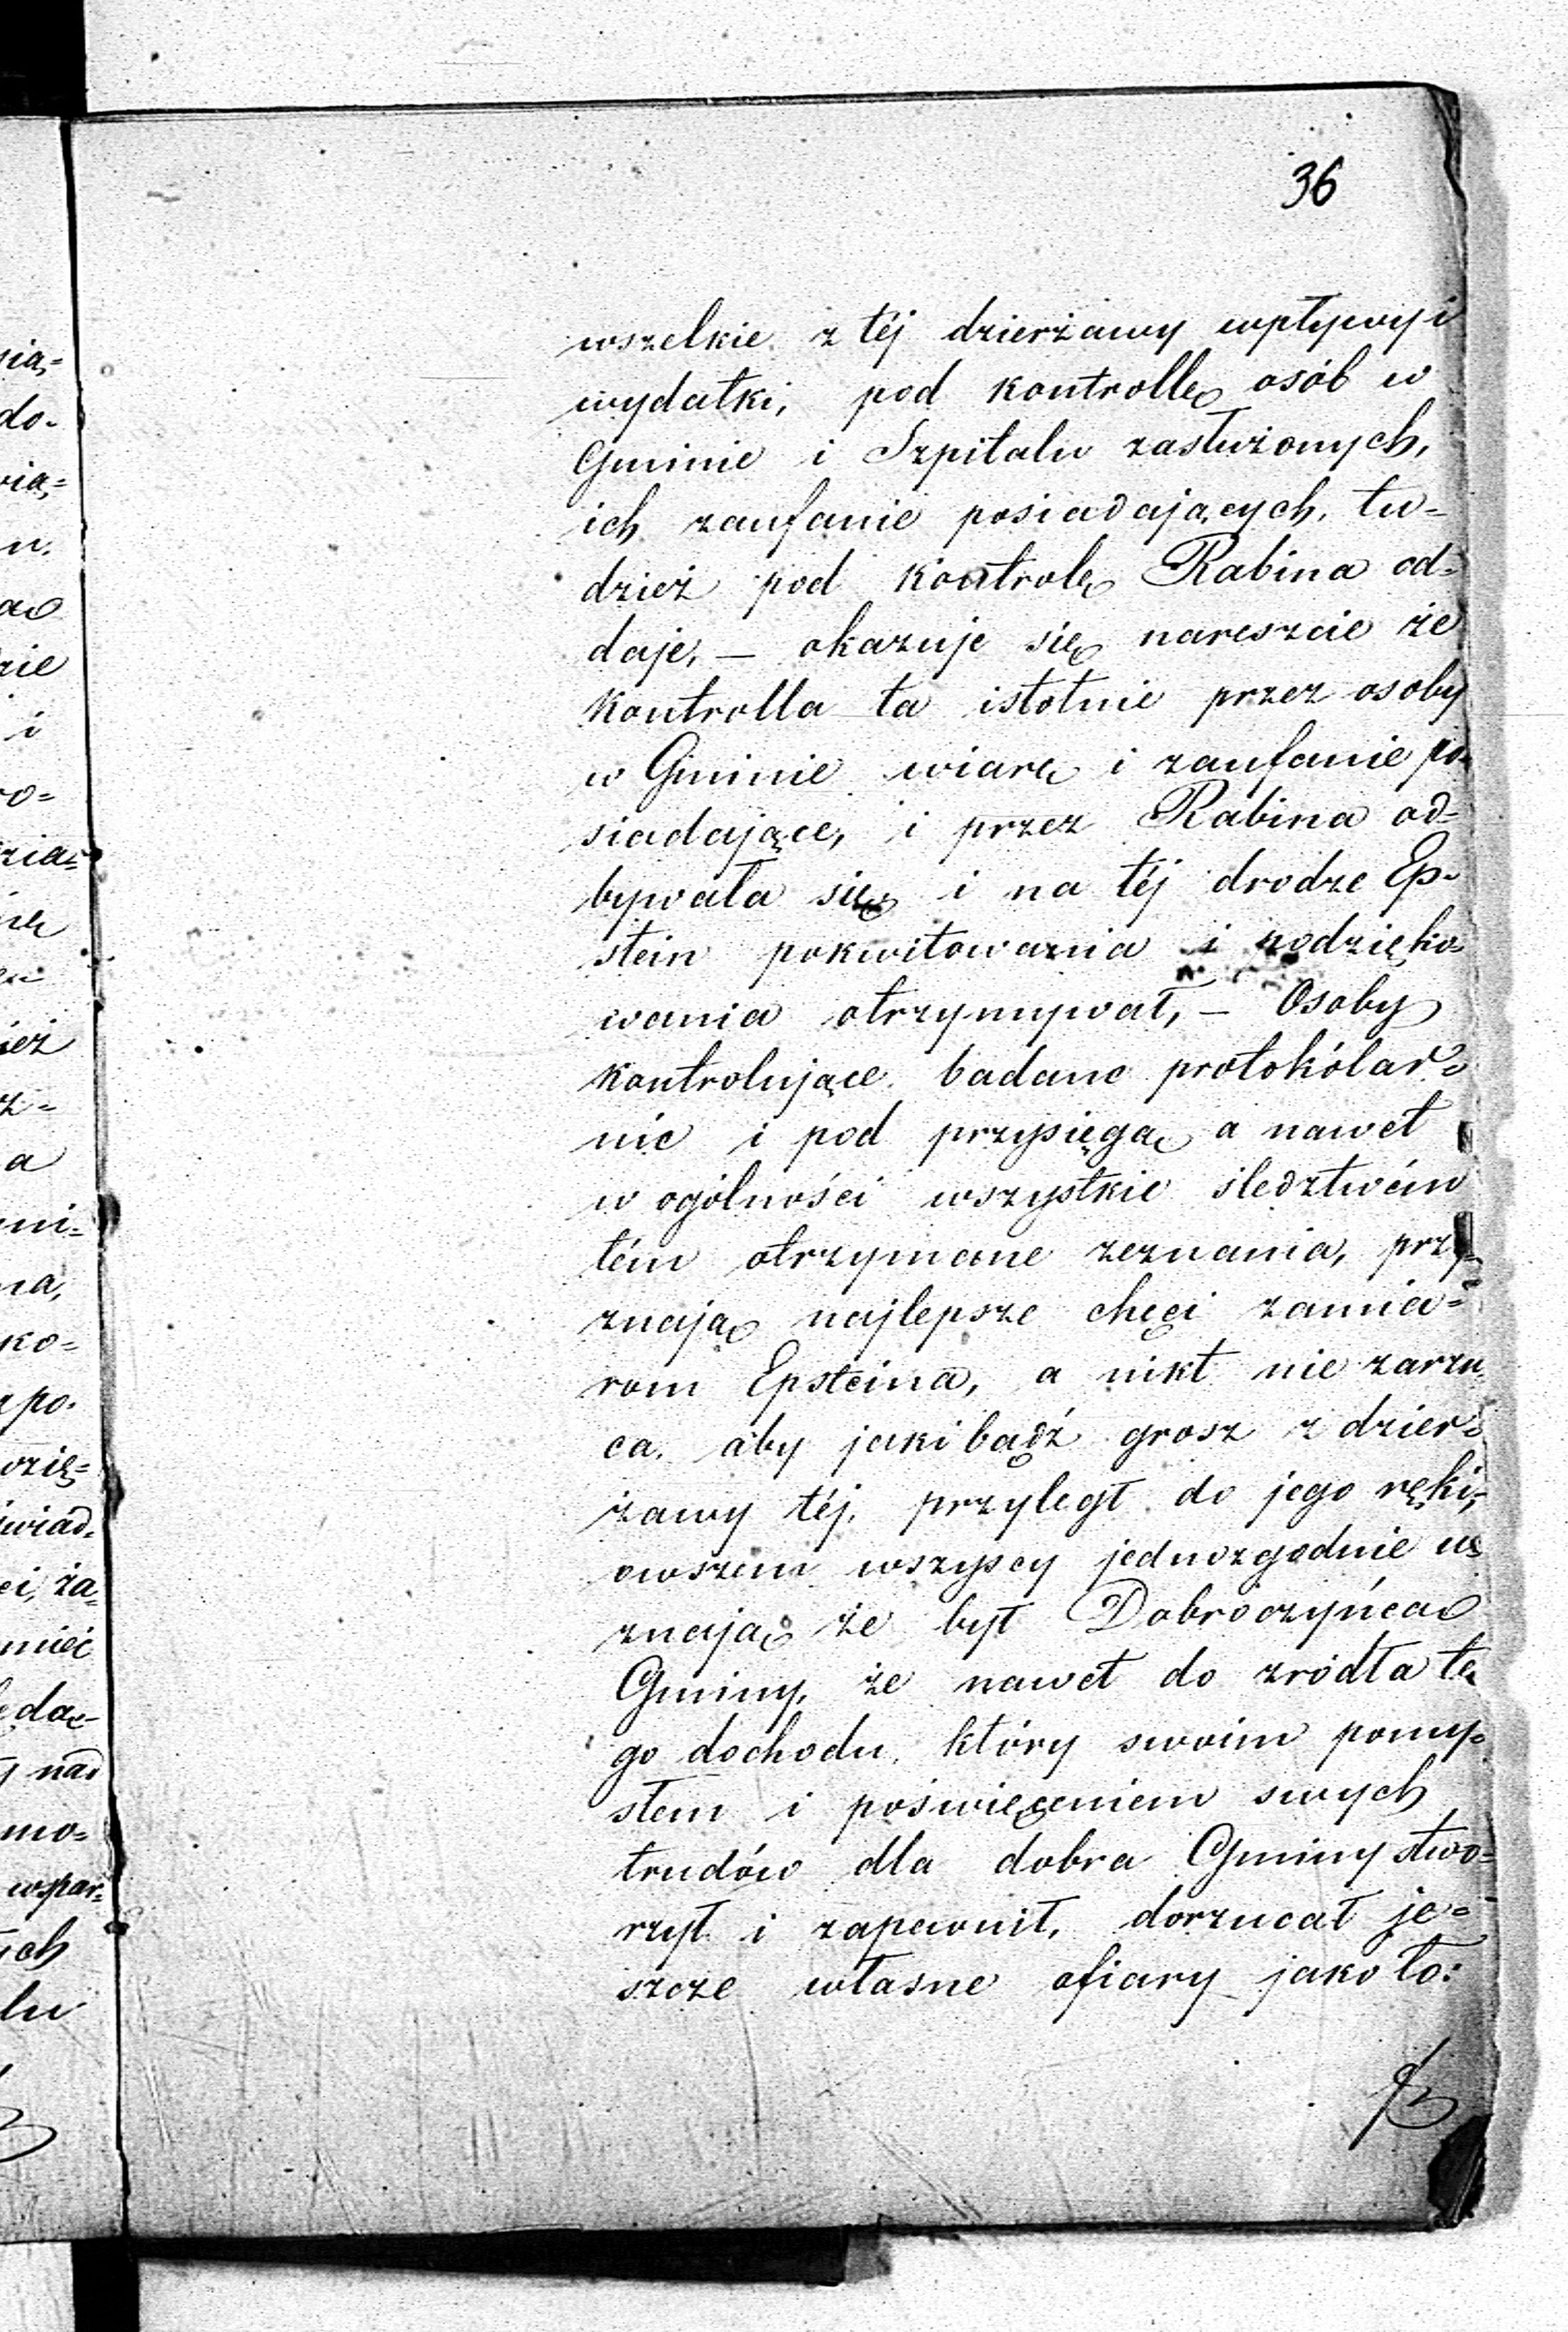 36
wszelkie z téj dzierżawy wpływy i
wydatki, pod kontrollę osób w
Gminie i Szpitalu zasłużonych,
ich zaufanie posiadających, tu-
dzież pod kontrolę Rabina od-
daje, — okazuje się nareszcie że
kontrolla ta istotnie przez osoby
w Gminie wiarę i zaufanie po-
siadające, i przez Rabina od-
bywała się i na téj drodze Ep-
stein pokwitowania i podzięko-
wania otrzymywał, — Osoby
kontrolujące badane protokólar-
nie i pod przysięgą a nawet
w ogólności wszystkie śledztwém
tém otrzymane zeznania, przy-
znają najlepsze chęci zamia-
rom Epsteina, a nikt nie zarzu-
ca, aby jaki bądź grosz z dzier-
żawy téj, przyległ do jego ręki,
owszem wszyscy jednozgodnie u-
znają że był Dobroczyńcą
Gminy, że nawet do zródła te-
go dochodu, który swoim pomy-
słem i poświęceniem swych
trudów dla dobra Gminy stwo-
rzył i zapewnił, dorzucał je-
szcze własne ofiary jako to:
sią-
do-
wią-
zie
i
ro-
a
na,
ko-
po-
świad-
ża-
mieć
nad
mo-
wspar-
lu